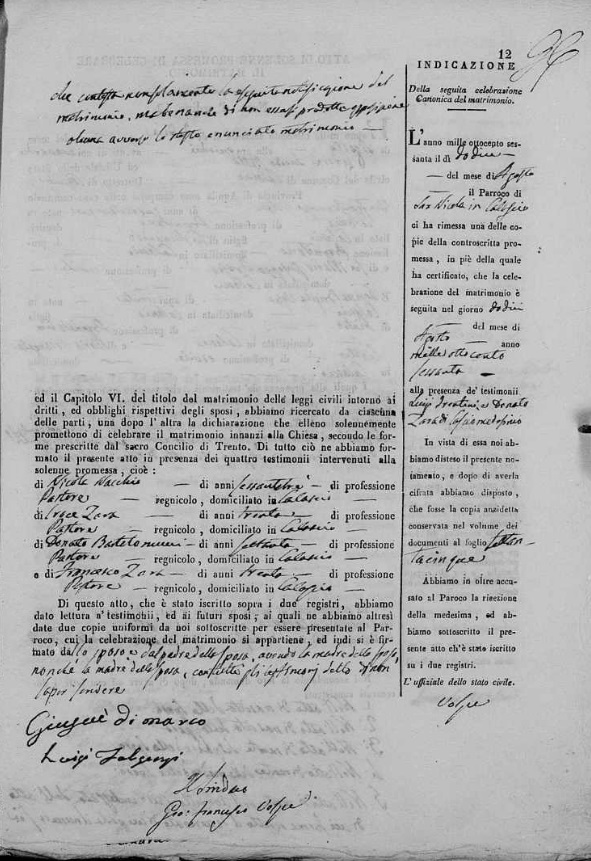 12
che contesta la seguita notificazione del
matrimonio, di non essersi prodotta opposizione
alcuna avverso lo stesso enunciato matrimonio —
ed il Capitolo VI. del titolo del matrimonio delle leggi civili intorno ai
dritti, ed obblighi rispettivi degli sposi, abbiamo ricercato da ciascuna
delle parti, una dopo l'altra la dichiarazione che elleno solennemente
promettono di celebrare il matrimonio innanzi alla Chiesa, secondo le for-
me prescritte dal sacro Concilio di Trento. Di tutto ciò ne abbiamo
formato il presente atto in presenza dei quattro testimonii intervenuti alla
solenne promessa, cioè:
di Nicola — di anni — di professione
Pastore — regnicolo, domiciliato in Calascio
di Croce Zara — di anni trenta — di professione
Pastore — regnicolo, domiciliato in Calascio
di Donato — di anni settanta — di professione
Pastore — regnicolo, domiciliato in Calascio
e di Francesco Zara — di anni trenta — di professione
Pastore — regnicolo, domiciliato in Calascio
Di questo atto, che è stato iscritto sopra i due registri, abbiamo
dato lettura a'testimonii, ed ai futuri sposi; ai quali ne abbiamo altresì
date due copie uniformi da noi sottoscritte per essere presentate al Pa-
roco, cui la celebrazione del matrimonio si appartiene, ed indi si è fir-
mato dallo sposo e dal padre della sposa, avendo la madre dello sposo,
nonché la madre della sposa, detto di non
saper scrivere
Giosuè di Marco
Luigi
Il Sindaco
Gio: Francesco Volpe
INDICAZIONE
Della seguita celebrazione
Canonica del matrimonio.
L'anno mille ottocento ses-
santa il dì dodici —
— del mese di Agosto
— il Parroco di
San Nicola in Calascio
ci ha rimessa una delle co-
pie della controscritta pro-
messa, in piè della quale
ha certificato, che la cele-
brazione del matrimonio è
seguita nel giorno dodici
— del mese di
Agosto — anno
mille ottocento
sessanta —
alla presenza de' testimonii
Luigi e Donato
Zara di
In vista di essa noi ab-
biamo disteso il presente no-
tamento, e dopo di averla
cifrata abbiamo disposto,
che fosse la copia anzidetta
conservata nel volume dei
documenti al foglio settan-
tacinque
Abbiamo in oltre accu-
sato al Paroco la ricezione
della medesima, ed ab-
biamo sottoscritto il pre-
sente atto ch'è stato iscritto
su i due registri.
L'uffiziale dello stato civile.
Volpe